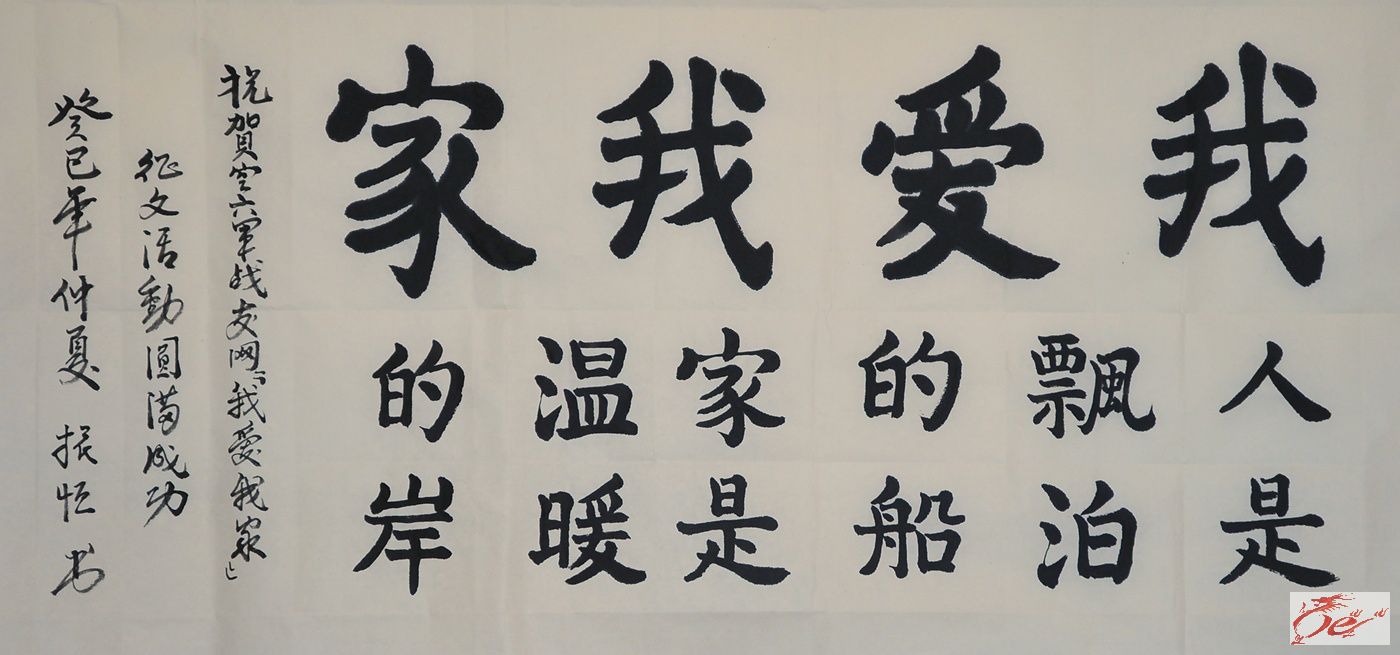 我爱我家
人是飄泊的船
家是温暖的岸
祝賀空六軍战友网「我爱我家」
征文活動圓满成功
癸巳年仲夏 振恒 书